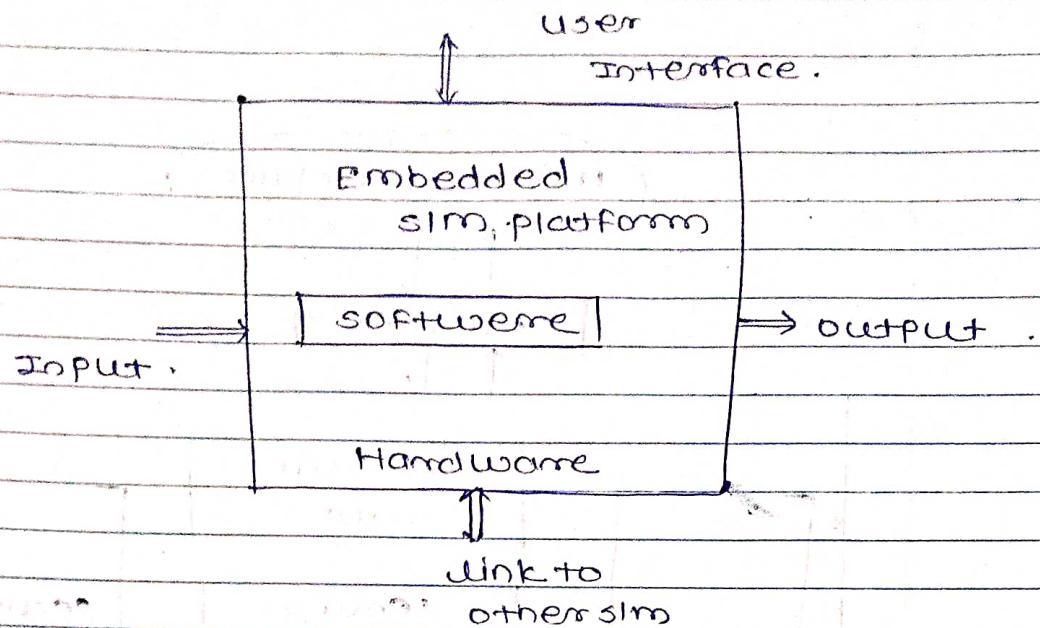 User
Interface.
Embedded
s/m, platform
Softwere
Input.
output.
Hardware
link to
other s/m